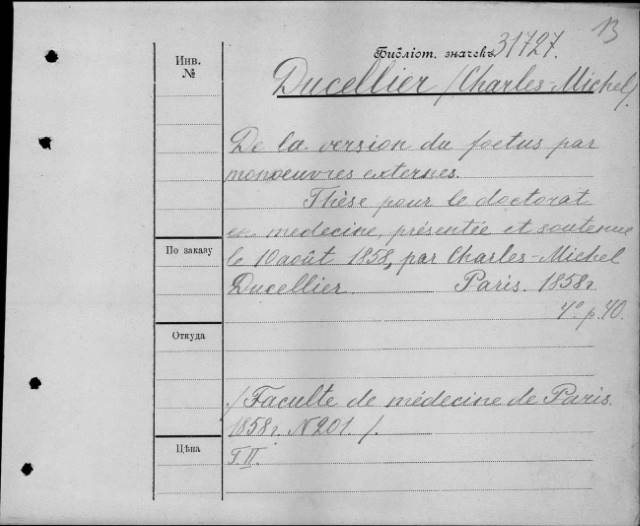 13
Инв.
№
Библіот. значекъ 31727.
Ducellier (Charles-Michel).
De la version du foetus par
manoeuvres externes.
Thèse pour le doctorat
en medecine, présentée et soutenue
По заказу
le 10 août 1858, par Charles-Michel
Ducellier. Paris. 1858 г.
4° p. 40.
Откуда
/Faculte de médecine de Paris.
1858 г. N 201. /.
Цѣна
T. II.